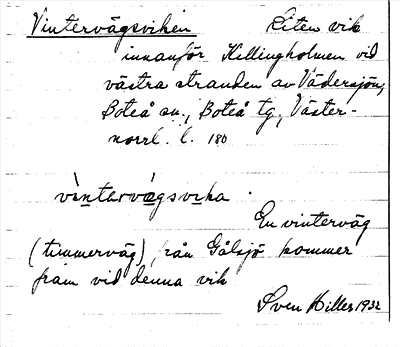 Vintervägsviken Liten vik
innanför Killingholmen vid
västra stranden av Vädersjön,
Boteå sn., Boteå tg, Väster-
norrl. l. 180
vìntervä̀gsvika.
En vinterväg
(timmerväg) från Gålsjö kommer
fram vid denna vik
Sven Hilles 1932